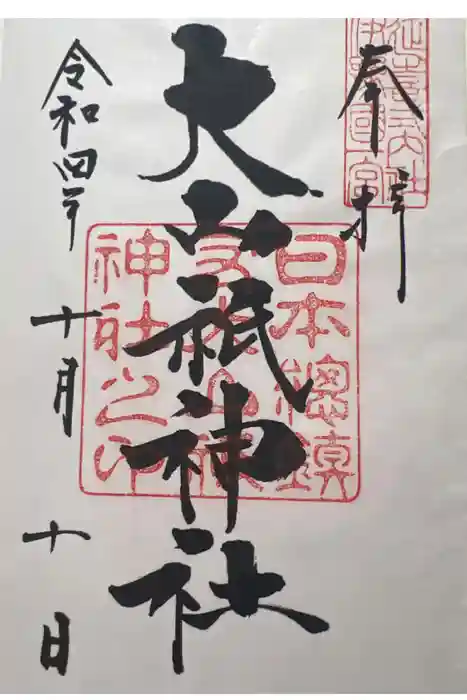 奉拝
大山祇神社
日本総鎮
神社之印
令和四年
十月
十日